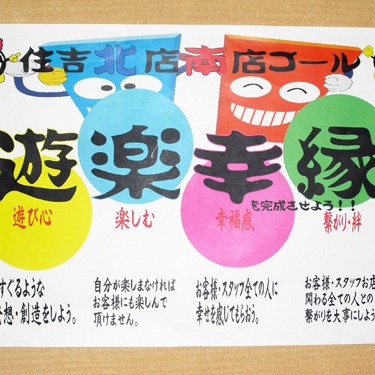 住吉北店南店ゴール
遊 楽 幸 縁
を完成させよう！！
遊び心
楽しむ
幸福感
繋がり・絆
すぐるような
想・創造をしよう。
自分が楽しまなければ
お客様にも楽しんで
頂けません。
お客様・スタッフ全ての人に
幸せを感じてもらおう。
お客様・スタッフお店
関わる全ての人との
繋がりを大事にしよう